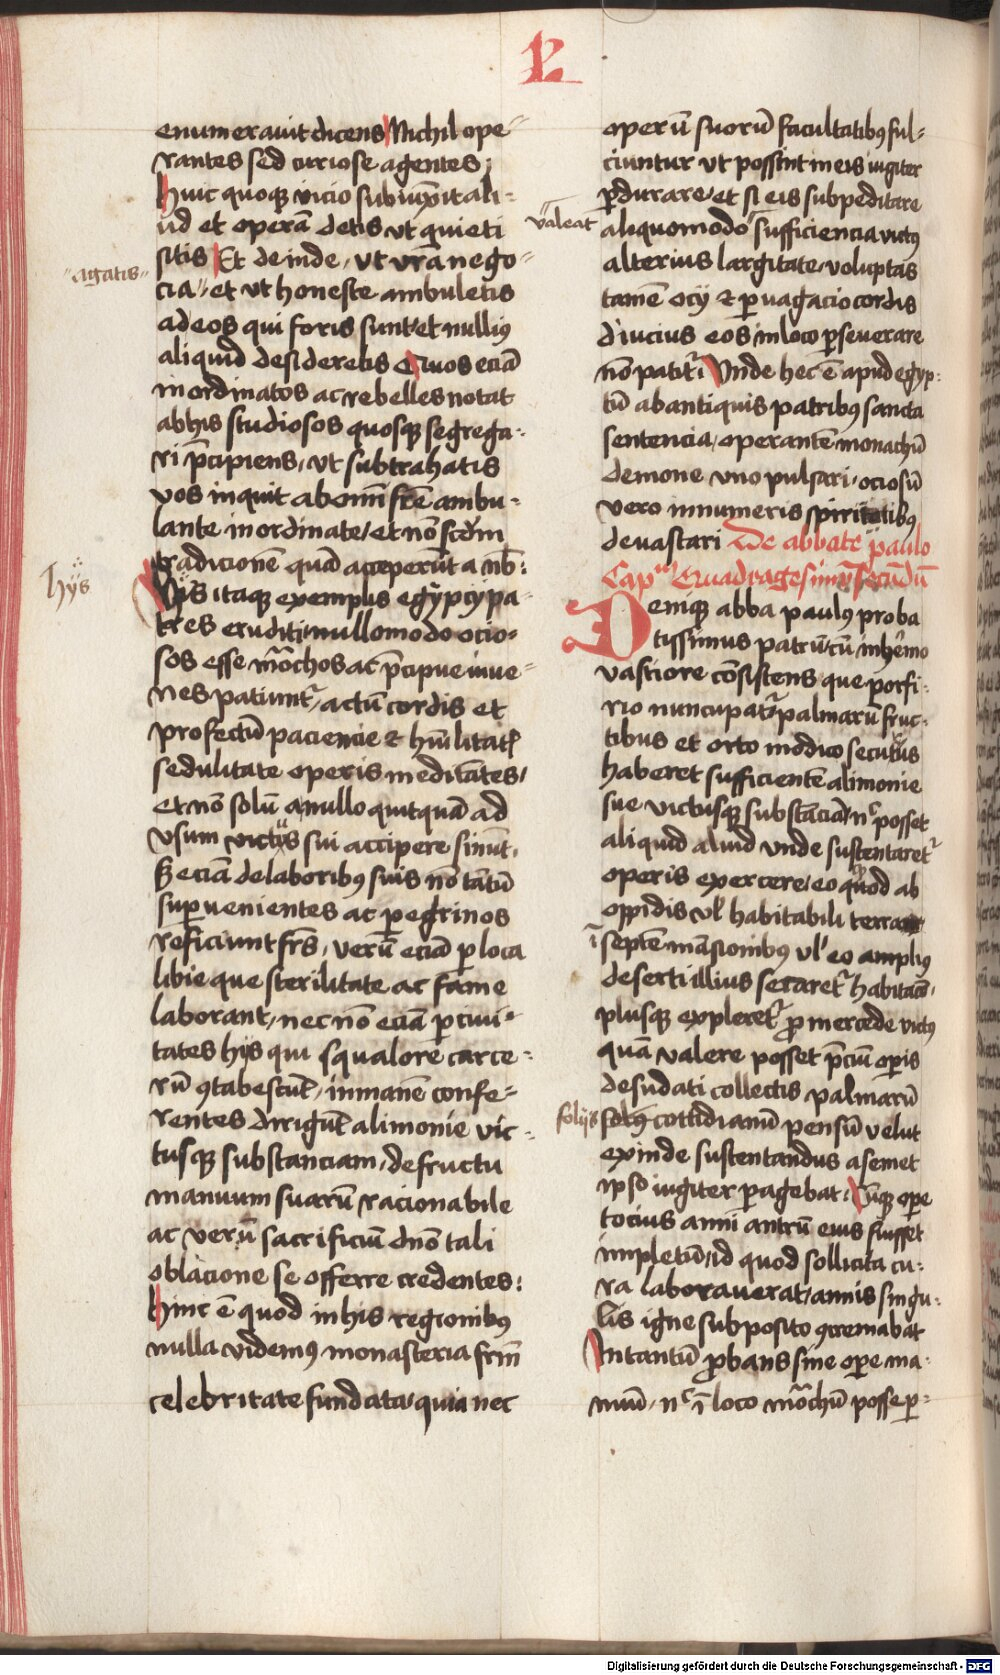 L
enumerauit dicens Nichil ope-
rantes sed curiose agentes;
Huic quoque vicio subiunxit ali-
ud et operā detis vt quieti
sitis Et deinde, vt vr̄a nego-
cia et vt honeste ambuletis
ad eos qui foris sunt et nulliꝰ
aliquid desideretis Quos eciā
inordinatos ac rebelles notat
ab his studiosos quosqꝫ segrega-
ri p̄cipiens, vt subtrahatis
vos inquit ab omī fr̄e ambu-
lante inordinate, et nō scd̄m
tradicionē quā acceperūt a nob̄:
Hijs itaqꝫ exemplis egypcij pa-
tres eruditi nullo modo ocio-
sos esse mōchos ac p̄cipue iuue-
nes patiunt᷑, actū cordis et
profectū paciencie ⁊ hūilitatꝭ
sedulitate operis meditātes,
et nō solū a nullo quitquā ad
vsum victus sui accipere sinūt,
sꝫ eciā de laboribꝰ suis nō tātū
suꝑuenientes ac ꝑegrinos
reficiunt frēs, verū eciā ꝑ loca
libie que sterilitate ac fame
laborant, nec nō eciā ꝑ ciui-
tates hijs qui squalore carce-
rū ꝯtabescūt, inmanē confe-
rentes dirigūt alimonie vic-
tusqꝫ substanciam, de fructu
manuum suarū racionabile
ac verū sacrificiū dn̄o tali
oblacione se offerre credentes:
Hinc ē quod in his regionibꝰ
nulla videmꝰ monasteria frm̄
celebritate fundata, quia nec
agatis
hijs
valeat
folijs
operū suorū facultatibꝰ ful-
ciuntur vt possint in eis iugiter
ꝑdurare, et si eis subpeditare
aliquomodo sufficiencia victꝰ
alterius largitate, voluptas
tamē ocij ⁊ ꝑuagacio cordis
diucius eos in loco ꝑseuerare
nō patit᷑ Vnde hec ē apud egyp-
tū ab antiquis patribꝰ sancta
sentencia, operantē monachū
demone vno pulsari, ociosū
vero innumeris spiritibꝰ
deuastari De abbate paulo
Capm̄ Quadragesimūsecūdū
Deniqꝫ abba paulꝰ proba
tissimus patrū, cū in h̄emo
vastiore cōsistens que porfi-
rio nuncupat᷑ palmarū fruc-
tibus et orto modico securus
haberet sufficientē alimonie
sue victusqꝫ substāciā n̄ posset
aliquid aliud vnde sustentaret᷑
operis exercere, eo quod ab
oppidis vl̄ habitabili terra
ī septē māsionibꝰ vl̄ eo ampliꝰ
deserti illius secaret᷑ habitacō
plusqꝫ expleret᷑ ꝓ mercede victꝰ
quā valere posset p̄ciū oꝑis
desudati collectis palmarū
cottidianū pensū velut
exinde sustentandus a semet
ipso iugiter ꝑagebat: Cūqꝫ oꝑe
tocius anni antrū eius fuisset
impletū, id quod sollicita cu-
ra laborauerat, annis singu-
lis igne subposito ꝯcremabat
Intantū ꝓbans sine oꝑe ma-
nuū, n̄ ī loco mōchū posse ꝑ-
Digitalisierung gefördert durch die Deutsche Forschungsgemeinschaft - DFG